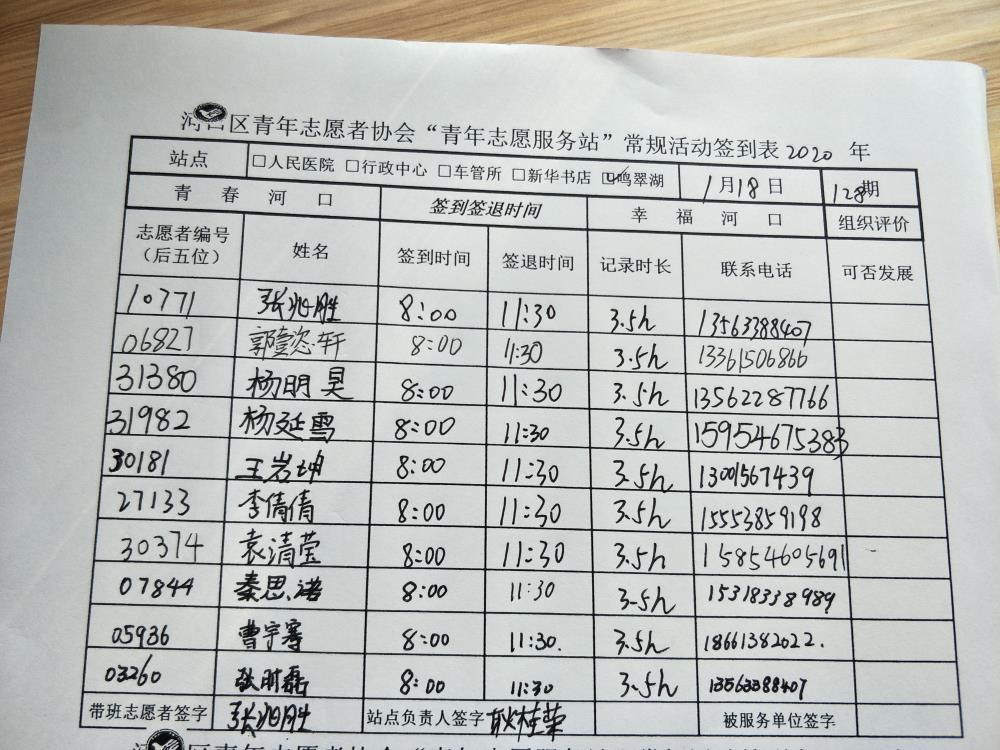 河口区青年志愿者协会“青年志愿服务站”常规活动签到表2020 年
站点 □人民医院 □行政中心 □车管所 □新华书店 ☑鸣翠湖 1月18日 128期
青春河口 签到签退时间 幸福河口 组织评价
志愿者编号（后五位） 姓名 签到时间 签退时间 记录时长 联系电话 可否发展
10771 张兆胜 8:00 11:30 3.5h 13563388407
06827 郭懿轩 8:00 11:30 3.5h 13361506866
31380 杨明昊 8:00 11:30 3.5h 13562287766
31982 杨延雪 8:00 11:30 3.5h 15954675383
30181 王岩坤 8:00 11:30 3.5h 13001567439
27133 李倩倩 8:00 11:30 3.5h 15553859198
30374 袁清莹 8:00 11:30 3.5h 15854605691
07844 秦思诺 8:00 11:30 3-5h 15318338989
05936 曹宇骞 8:00 11:30. 3.5h 18661382022.
03260 张时磊 8:00 11:30 3.5h 13563388407
带班志愿者签字 张兆胜 站点负责人签字 耿桂荣 被服务单位签字